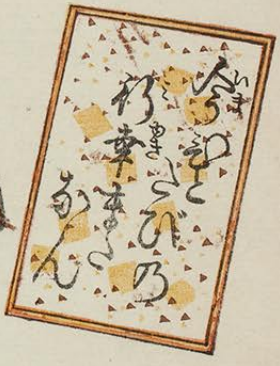 今いまひと
たびの
行幸みゆきまた
なん